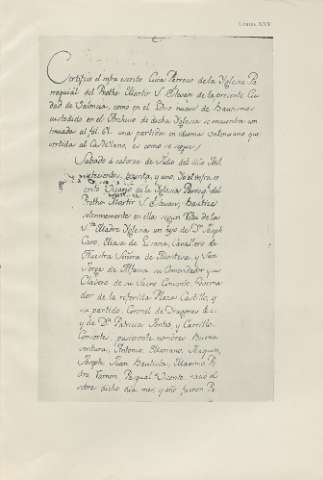 LÁMINA XXV
Certifico el infra escrito Cura Parroco de la Yglesia Pa
rroquial del Protho Martir S. Estevan de la presente Ciu
dad de Valencia, como en el Libro nuevo de Bautismos
custodido en el Archivo de dicha Yglesia se encuentra con
tinuada al fol. 61. una partida en idioma valenciano que
vertida al Castellano, es como se sigue:
Sabado a catorce de Julio del año Mil
setecientos, treinta, y uno. Yo el infra es
crito Vicario de la Yglesia Parroql. del
Protho Martir S. Estevan, bautice
solemnemente en ella segun Rito de la
Sta. Madre Yglesia un hijo de Dn. Joseph
Caro, Maza de Lizana, Cavallero de
Nuestra Señora de Montesa y San
Jorge de Alfama su Comendador y
Clavero de su Sacro Convento, Governa
dor de la referida Plaza Castillo, y
su partido, Coronel de Dragones &c.
y de Da. Patricia Fontes y Carrillo
Consortes, pusieronle nombres Buena
ventura, Antonio, Mariano, Joaquin,
Joseph, Juan Bautista, Maximo Pe
dro Ramon, Pasqual Vicente: nació el
sobre dicho dia, mes, y año fueron Pa